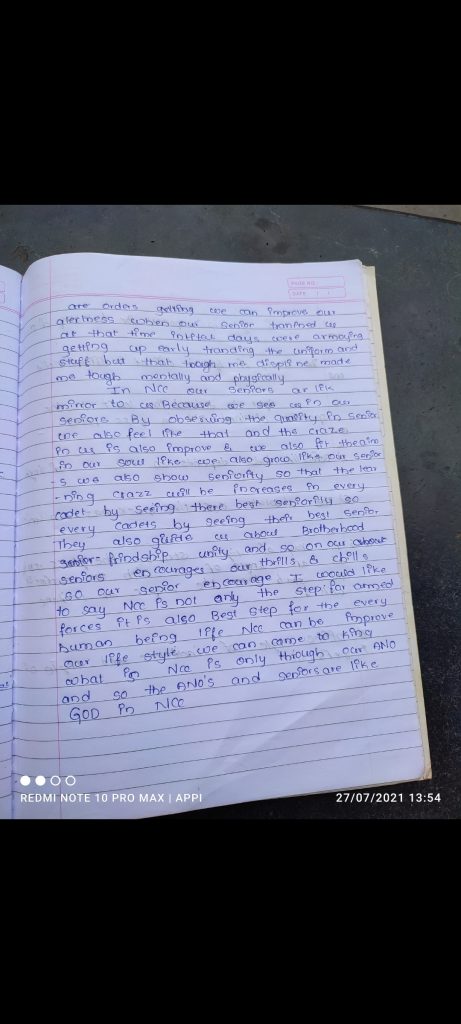 PAGE NO.:
DATE: / /
are orders getting we can improve our
alertness when our senior trainned us
at that time initial days were annoying
getting up early tranding the uniform and
stuff but that tough me displine made
me tough mentally and physically
In NCC our seniors ar lik
mirror to us Because we see us in our
seniors By observing the quality in senior
we also feel like that and the craze
in us is also improve & we also fit the aim
in our soul like we also grow like our senior
s we also show seniority so that the lear
-ning crazz will be increases in every
cadet by seeing there best seniority so
every cadets by seeing their best senior
They also guide us about Brotherhood
friendship unity and so on our
seniors encourages our thrills & chills
so our senior encourage I would like
to say NCC is not only the step for armed
forces it is also Best step for the every
human being life NCC can be improve
our life style we can come to
what is NCC is only through our ANO
and so the ANO's and seniors are like
GOD in NCC
REDMI NOTE 10 PRO MAX | APPI
27/07/2021 13:54